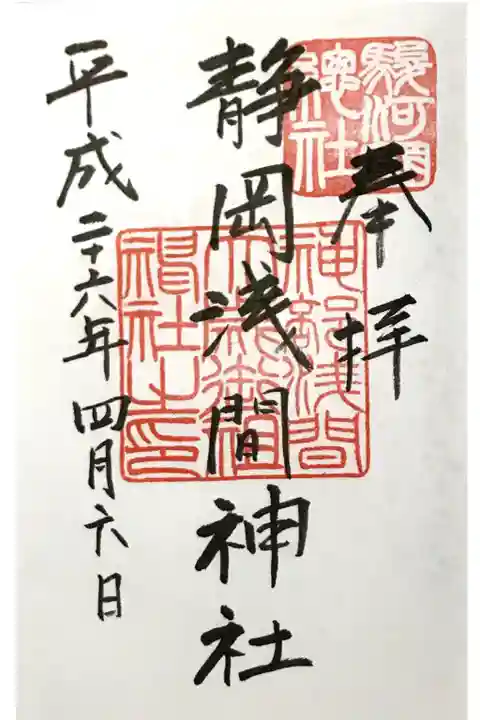 奉拝
駿河國
總社
静岡浅間神社
神部浅間
大歳御祖
神社之印
平成二十六年四月六日